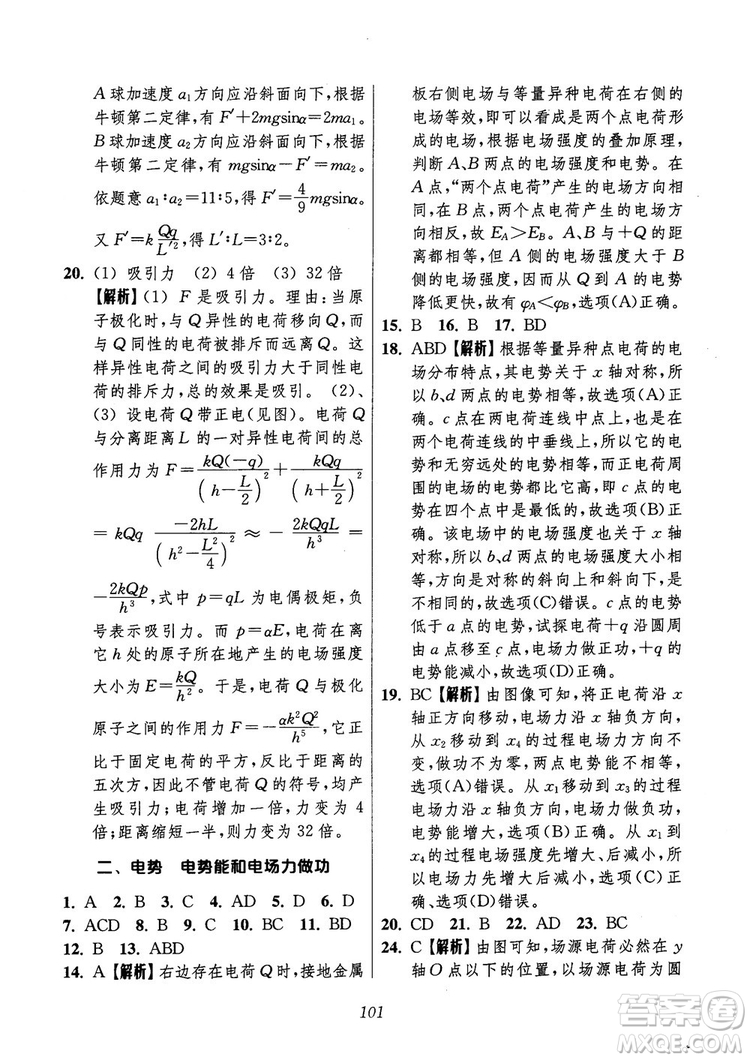 A 球加速度 a₁ 方向应沿斜面向下，根据
牛顿第二定律，有 F′＋2mgsinα＝2ma₁．
B 球加速度 a₂ 方向应沿斜面向下，根据
牛顿第二定律，有 mgsinα－F′＝ma₂．
依题意 a₁∶a₂＝11∶5，得 F′＝4/9 mgsinα．
又 F′＝k Qq/L′²，得 L′∶L＝3∶2．
20. (1) 吸引力 (2) 4 倍 (3) 32 倍
【解析】(1) F 是吸引力．理由：当原
子极化时，与 Q 异性的电荷移向 Q，而
与 Q 同性的电荷被排斥而远离 Q．这
样异性电荷之间的吸引力大于同性电
荷的排斥力，总的效果是吸引．(2)、
(3) 设电荷 Q 带正电(见图)．电荷 Q
与分离距离 L 的一对异性电荷间的总
作用力为 F＝kQ(－q)/(h－L/2)²＋kQq/(h＋L/2)²
＝kQq －2hL/(h²－L²/4)²≈－2kQqL/h³＝
－2kQp/h³，式中 p＝qL 为电偶极矩，负
号表示吸引力．而 p＝αE，电荷 Q 在离
它 h 处的原子所在地产生的电场强度
大小为 E＝kQ/h²．于是，电荷 Q 与极化
原子之间的作用力 F＝－αk²Q²/h⁵，它正
比于固定电荷的平方，反比于距离的
五次方，因此不管电荷 Q 的符号，均产
生吸引力；电荷增加一倍，力变为 4
倍；距离缩短一半，则力变为 32 倍．
二、电势 电势能和电场力做功
1. A 2. B 3. C 4. AD 5. D 6. D
7. ACD 8. B 9. C 10. BC 11. BD
12. B 13. ABD
14. A【解析】右边存在电荷 Q 时，接地金属
板右侧电场与等量异种电荷在右侧的
电场等效，即可以看成是两个点电荷
形成的电场，根据电场强度的叠加原理，
判断 A、B 两点的电场强度和电势．在
A 点，“两个点电荷”产生的电场方向相
同，在 B 点，两个点电荷产生的电场方
向相反，故 E_A＞E_B．A、B 与＋Q 的距
离都相等，但 A 侧的电场强度大于 B
侧的电场强度，因此从 Q 至 A 的电势
降低更快，故有 φ_A＜φ_B，选项(A)正确．
15. B 16. B 17. BD
18. ABD【解析】根据等量异种点电荷的电
场分布特点，其电势关于 x 轴对称，所
以 b、d 两点的电势相等，故选项(A)正
确．c 点在两电荷连线中点上，也是在
两个电荷连线的中垂线上，所以它的电
势和无穷远处的电势相等．而正电荷周
围的电场的电势都比它高，即 c 点电势
在四个点中是最低的，故选项(B)正
确．该电场中的电场强度也关于 x 轴
对称，所以 b、d 两点的电场强度大小相
等，方向是对称的斜向上和斜向下，即
是不相同的，故选项(C)错误．c 点的电
势低于 a 点的电势，试探电荷＋q 沿圆
周由 a 点移至 c 点，电场力做正功，＋q 的
电势能减小，故选项(D)正确．
19. BC【解析】由图像可知，将正电荷沿 x
轴正方向移动，电场力沿 x 轴负方向，
从 x₂ 移动到 x₄ 的过程电场力方向不
变，做功不为零，两点电势能不相等，
选项(A)错误．从 x₁ 移动到 x₃的过程
电场力沿 x 轴负方向，电场力做负功，
电势能增大，选项(B)正确．从 x₁ 到 x₄
的过程电场强度先增大、后减小，所以
电场力先增大后减小，选项(C)正确，
选项(D)错误．
20. CD 21. B 22. AD 23. BC
24. C【解析】由图可知，场源电荷必然在 y
轴O 点以下的位置，以场源电荷为圆
101
答案圈
MXQE.COM